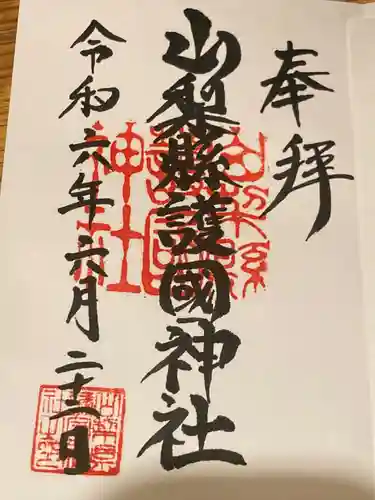 奉拝
山梨縣護國神社
令和六年六月二十二日